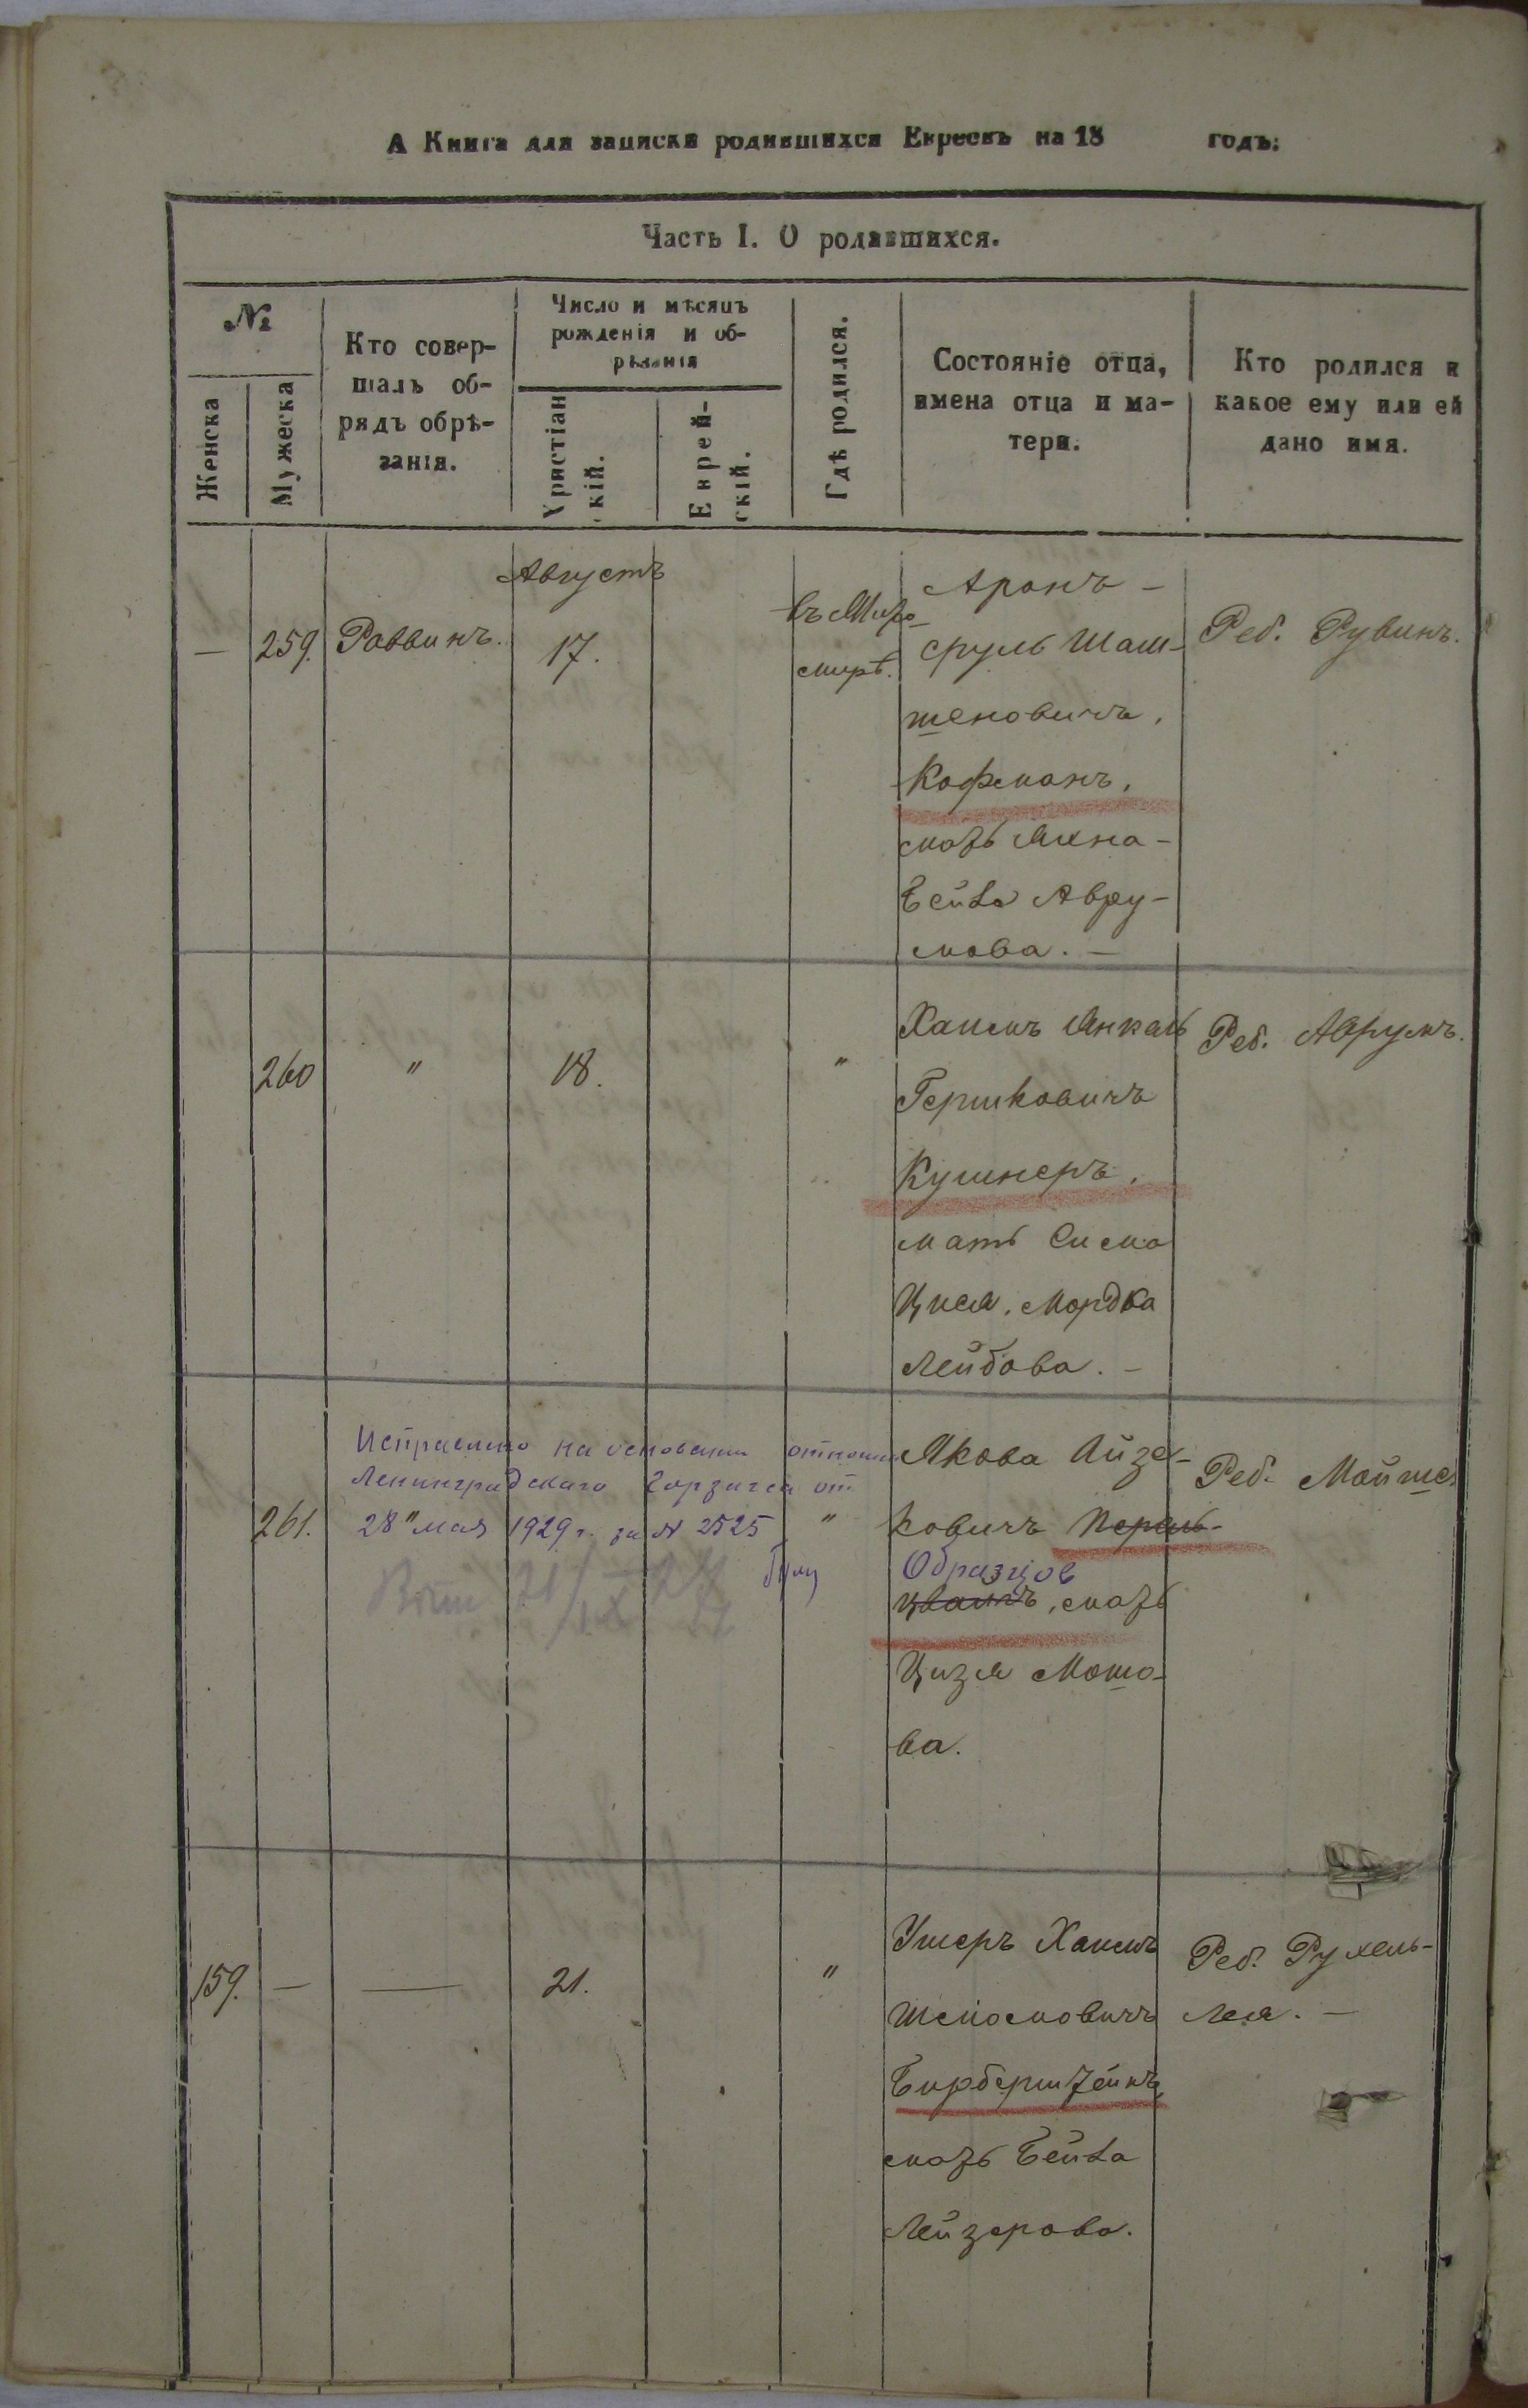 А Книга для записки родившихся Евреевъ на 18 годъ.
Часть I. О родившихся.
№
Женска
Мужеска
Кто совер-
шалъ об-
рядъ обрѣ-
занія.
Число и мѣсяцъ
рожденія и об-
рѣзанія
Христіан
скій.
Еврей-
скій.
Гдѣ родился.
Состояніе отца,
имена отца и ма-
тери.
Кто родился и
какое ему или ей
дано имя.
Августъ
—
259.
Раввинъ.
17.
Аронъ -
сруль Шаш-
шеновичъ,
Кофманъ,
мать
Бейла Авру-
мова. —
Реб. Рувинъ.
260
"
18.
"
Хаимъ Янкель
Гершковичъ
Кушнеръ,
мать Сима
Цися, Мордка
Лейбова. —
Реб. Аврумъ.
261.
Исправлено на основании
Ленинградскаго от
28" мая 1929 г. за N 2525
"
Якова Айзе-
ковичъ Перель-
Образцов
цвайгъ, мать
Цизя Мошо-
ва.
Реб. Мойше
159.
—
—
21.
"
Ушеръ Хаимъ
Шліомовичъ
мать Бейла
Лейзерова.
Реб. Рухель-
Лея. —